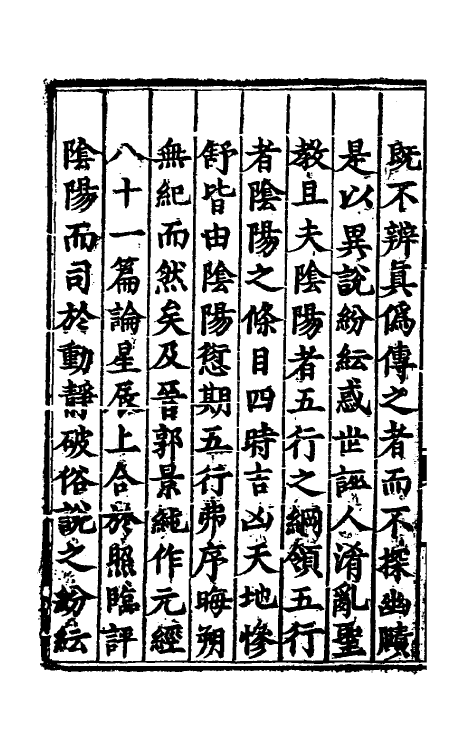 既不辨真偽傳之者而不探幽賾
是以異說紛紜惑世誣人淆亂聖
教且夫陰陽者五行之綱領五行
者陰陽之條目四時吉凶天地慘
舒皆由陰陽愆期五行弗序晦朔
無紀而然矣及晉郭景純作元經
八十一篇論星辰上合於照臨評
陰陽而司於動靜破俗說之紛紜